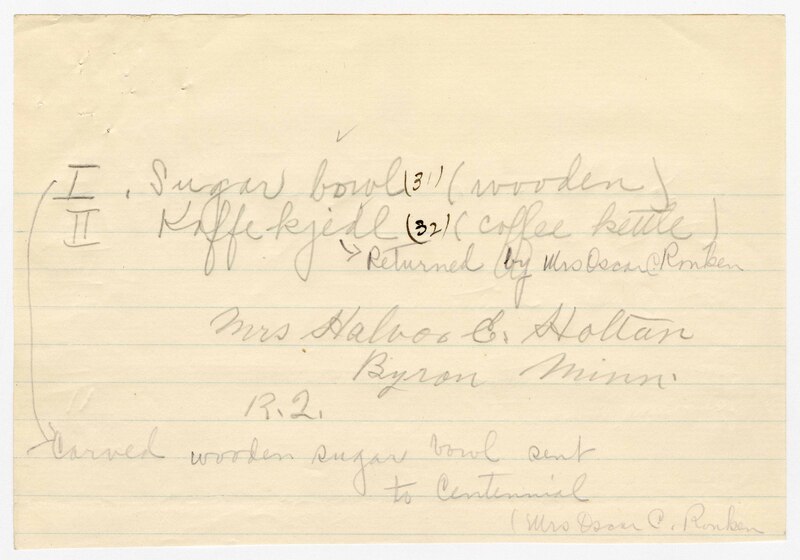 I. Sugar bowl (31) (wooden)
II Kaffekjedl (32) (coffee kettle)
Returned by Mrs Oscar C. Ronken
Mrs Halvor E. Holtan
Byron Minn.
R. 2.
Carved wooden sugar bowl sent
to Centennial
(Mrs Oscar C. Ronken